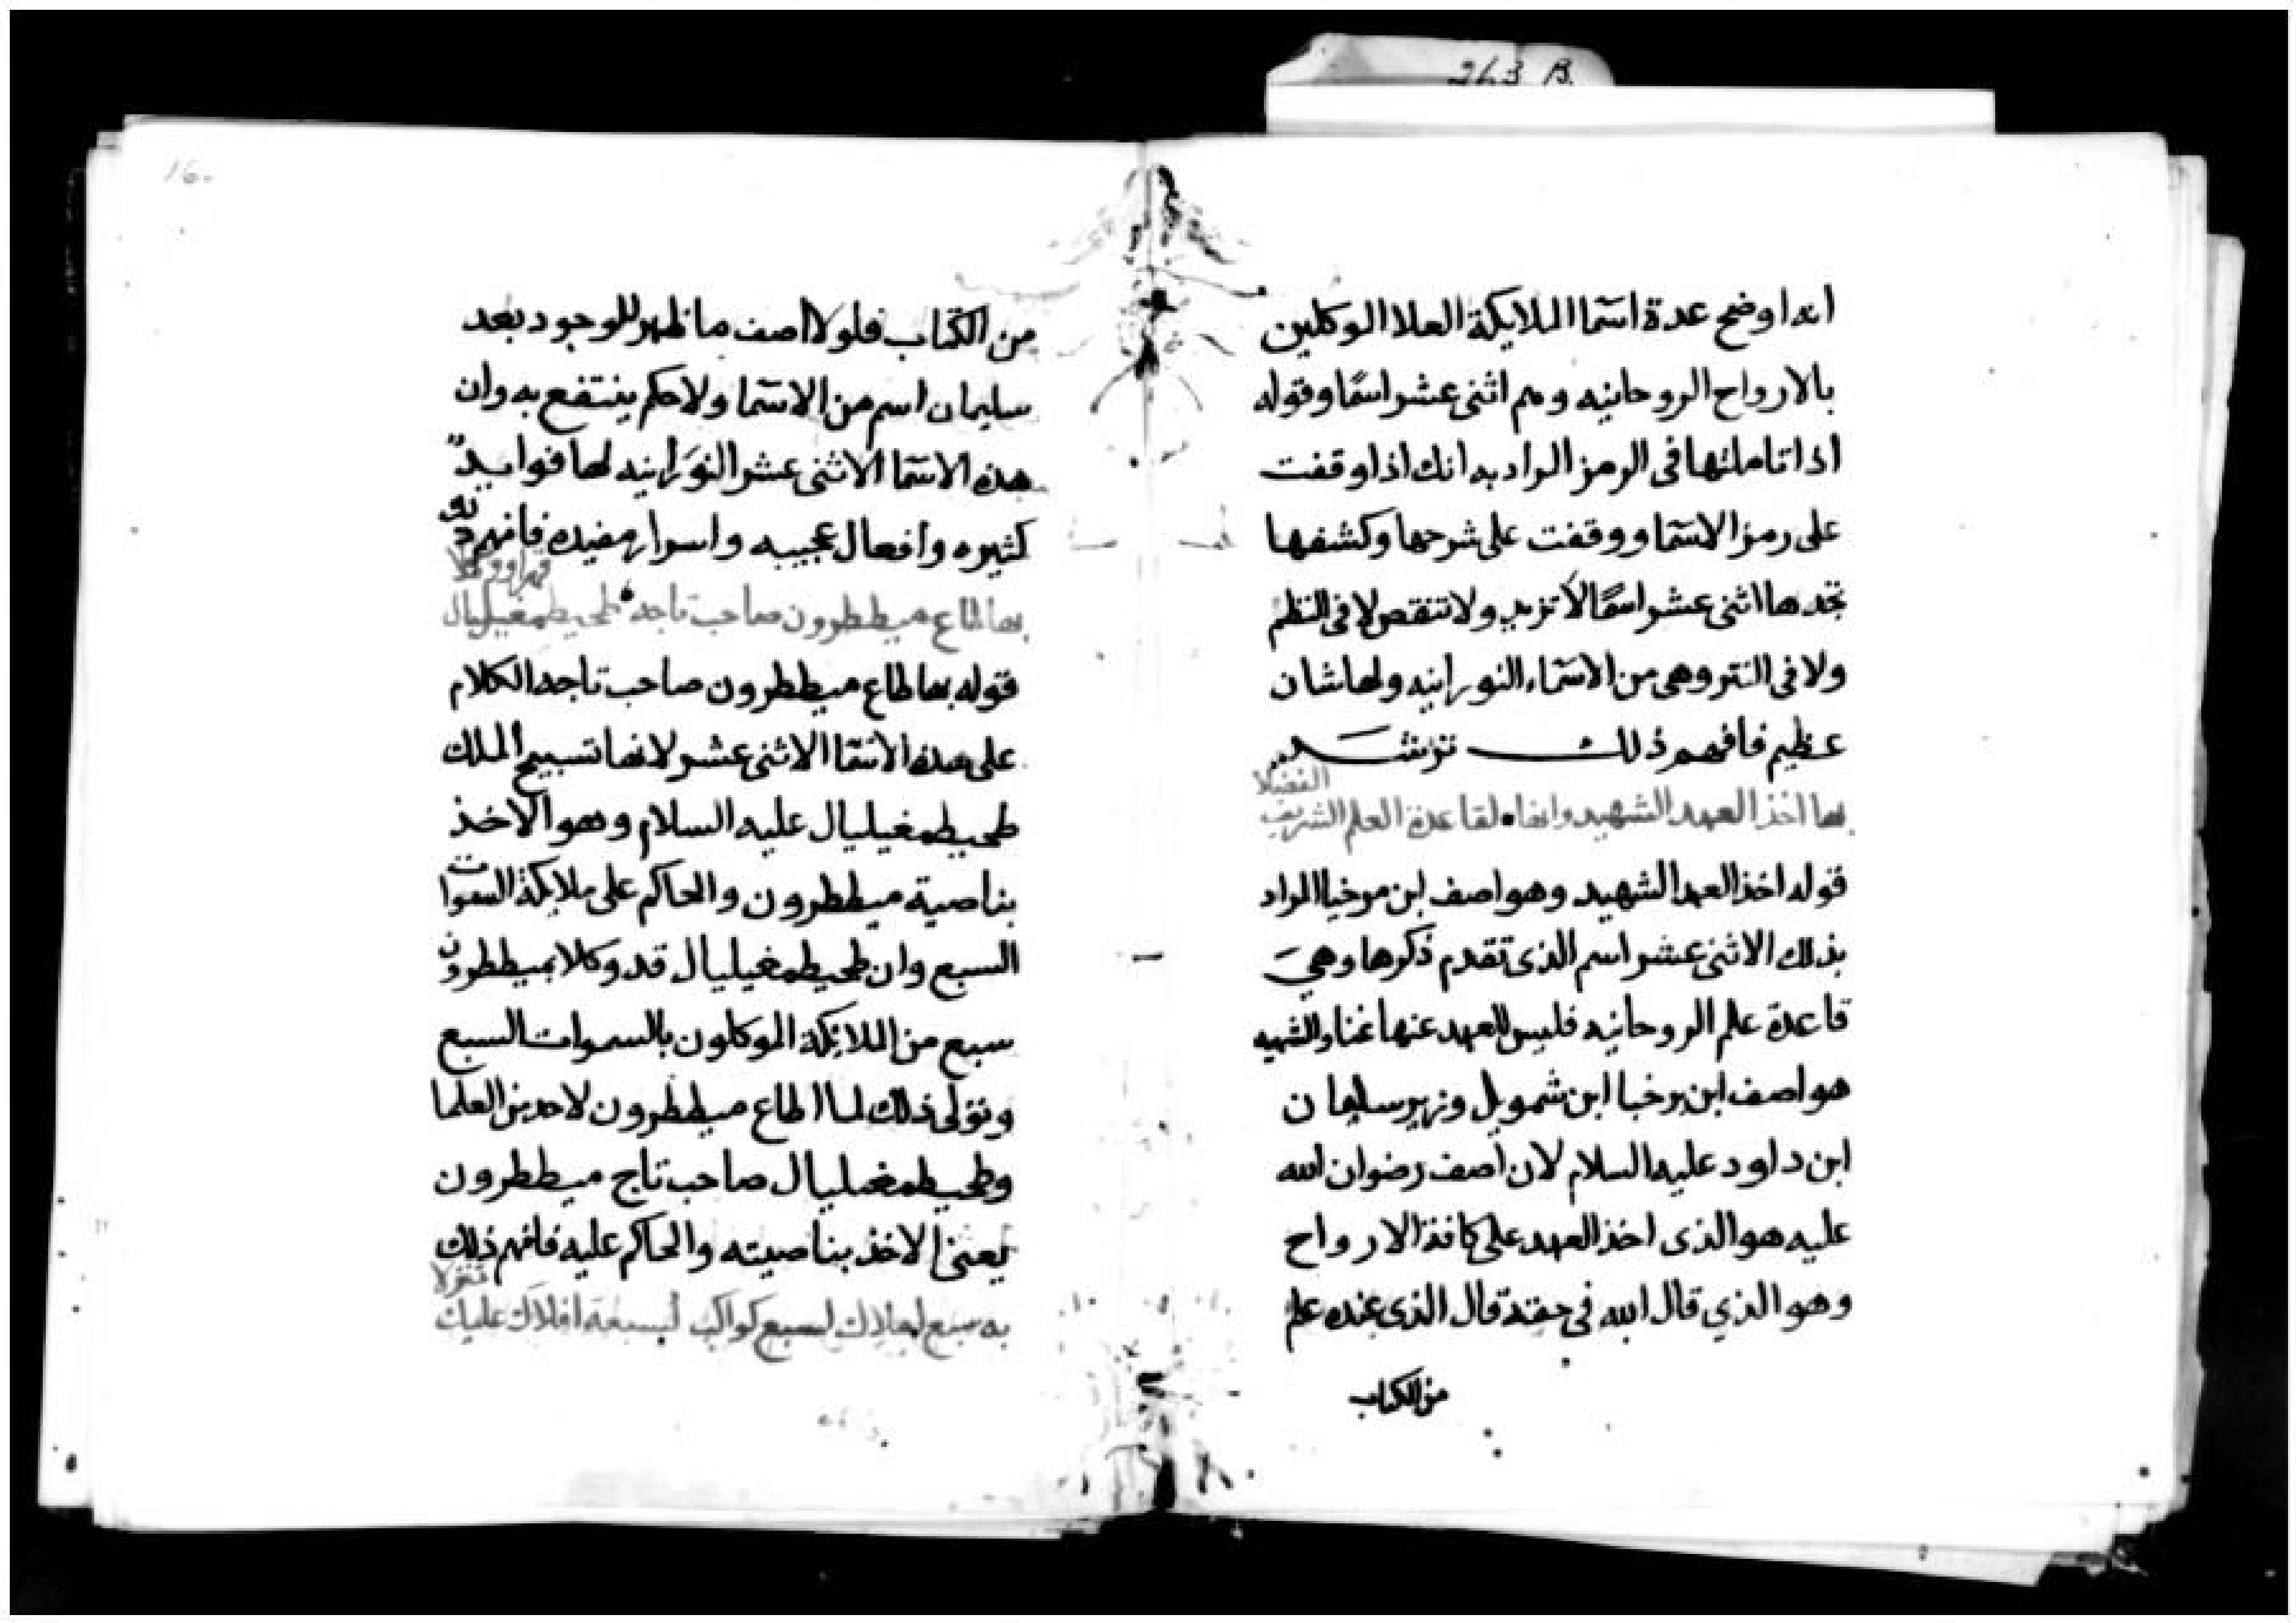 263 B.
انه اوضح عدة اسما الملايكة العلا الموكلين
بالارواح الروحانيه وهم اثنى عشر اسمًا وقوله
اذا تاملتها فى الرمز المراد به انك اذا وقفت
على رمز الاسما ووقفت على شرحها وكشفها
تجدها اثنى عشر اسمًا لا تزيد ولا تنقص لا فى النظم
ولا فى النثر وهى من الاسماء النورانيه ولها شان
عظيم فافهم ذلك ترشد
بها اخذ العهد الشهيد وانها لقاعدة العلم الشريف الفضلا
قوله اخذ العهد الشهيد وهو اصف ابن مرخيا المراد
بذلك الاثنى عشر اسم الذى تقدم ذكرها وهى
قاعدة علم الروحانيه فليس للعهد عنها غنا والشهيد
هو اصف ابن برخيا ابن شمويل وزير سليمان
ابن داود عليه السلام لان اصف رضوان الله
عليه هو الذى اخذ العهد على كافة الارواح
وهو الذي قال الله فى حقه قال الذى عنده علم
من الكتاب
16.
من الكتاب فلولا اصف ما ظهر للوجود بعد
سليمان اسم من الاسما ولا حكم ينتفع به وان
هذه الاسما الاثنى عشر النورانيه لها فوايد
كثيره وافعال عجيبه واسرار مفيده فافهم
بها طاع ميططرون صاحب تاجه طحيطمغيليال
قوله بها طاع ميططرون صاحب تاجه الكلام
على هذه الاسما الاثنى عشر لانها تسبيح الملك
طحيطمغيليال عليه السلام وهو الاخذ
بناصية ميططرون والحاكم على ملايكة السموات
السبع وان طحيطمغيليال قد وكلا بميططرون
سبع من الملايكة الموكلون بالسموات السبع
وتولى ذلك لما اطاع ميططرون لاحد من العلما
وطحيطمغيليال صاحب تاج ميططرون
يعنى الاخذ بناصيته والحاكم عليه فافهم ذلك
به سبع املاك لسبع كواكب لسبعة افلاك عليك تنزلا